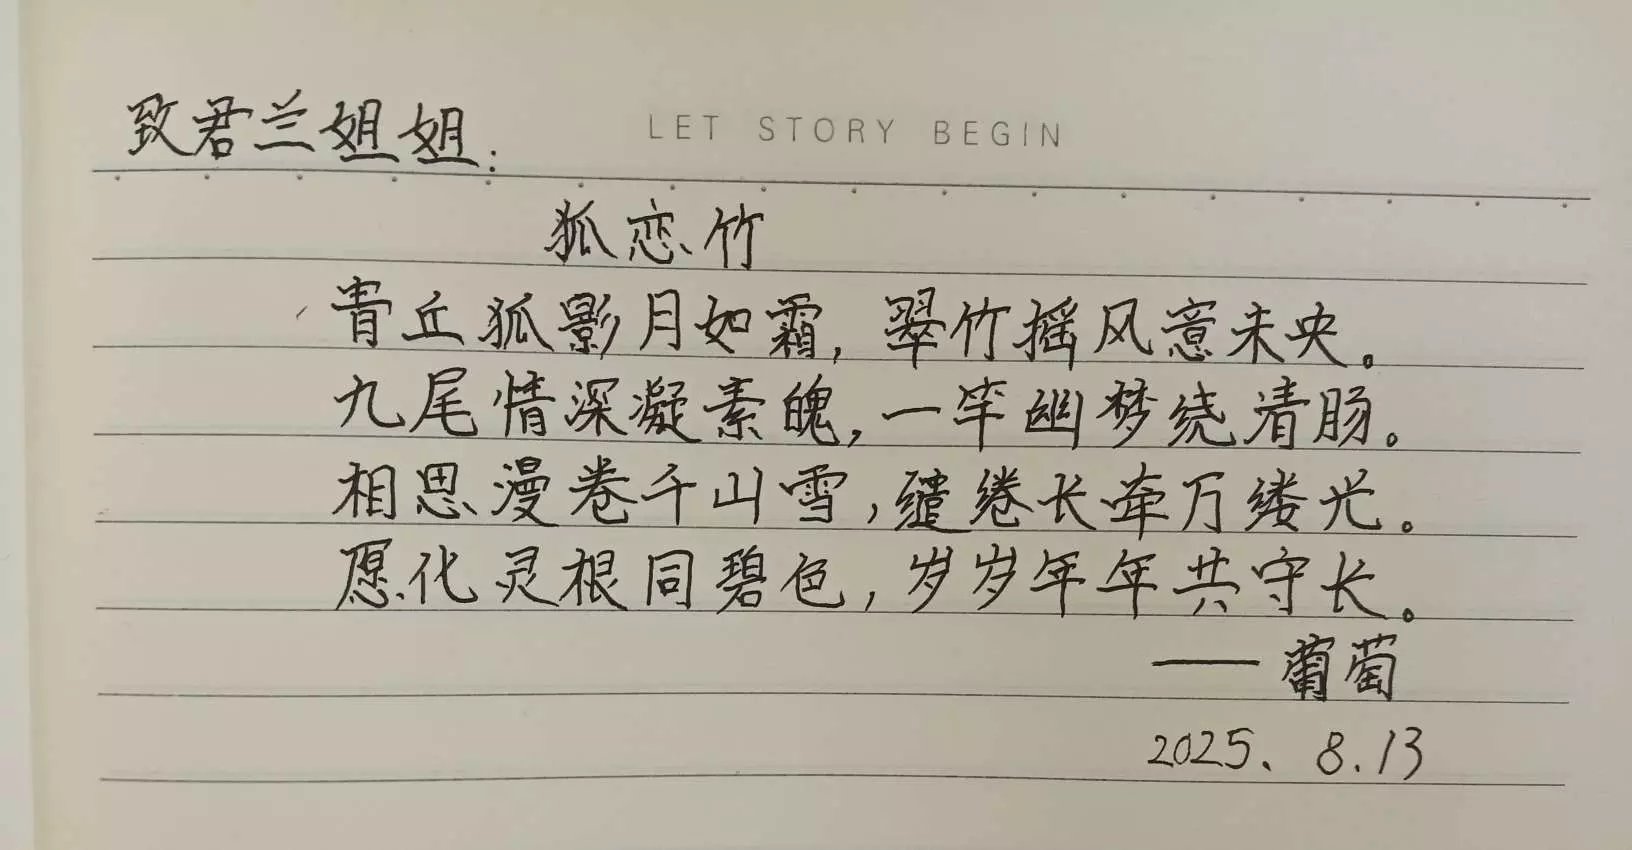 致君兰姐姐:
LET STORY BEGIN
狐恋竹
青丘狐影月如霜,翠竹摇风意未央。
九尾情深凝素魄,一竿幽梦绕青肠。
相思漫卷千山雪,缱绻长牵万缕光。
愿化灵根同碧色,岁岁年年共守长。
——葡萄
2025、8.13